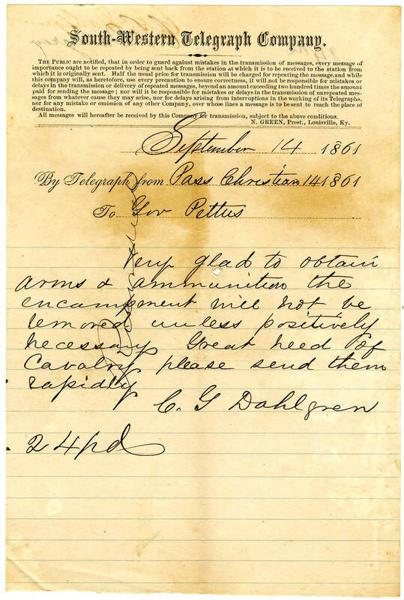 South-Western Telegraph Company.
THE PUBLIC are notified, that in order to guard against mistakes in the transmission of messages, every message of
importance ought to be repeated by being sent back from the station at which it is to be received to the station from
which it is originally sent. Half the usual price for transmission will be charged for repeating the message, and while
this company will, as heretofore, use every precaution to ensure correctness, it will not be responsible for mistakes or
delays in the transmission or delivery of repeated messages, beyond an amount exceeding two hundred times the amount
paid for sending the message; nor will it be responsible for mistakes or delays in the transmission of unrepeated mes-
sages from whatever cause they may arise, nor for delays arising from interruptions in the working of its Telegraphs,
nor for any mistake or omission of any other Company, over whose lines a message is to be sent to reach the place of
destination.
All messages will hereafter be received by this Company for transmission, subject to the above conditions.
N. GREEN, Prest., Louisville, Ky.
September 14 1861
By Telegraph from Pass Christian 14 1861
To Gov Pettus
Very glad to obtain
arms & ammunition the
encampment will not be
removed unless positively
necessary Great need of
Cavalry please send them
rapidly
C G Dahlgren
24 pd